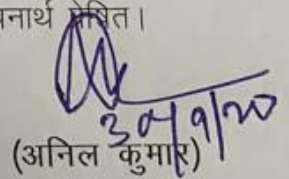 प्रेषित।
30/9/20
(अनिल कुमार)